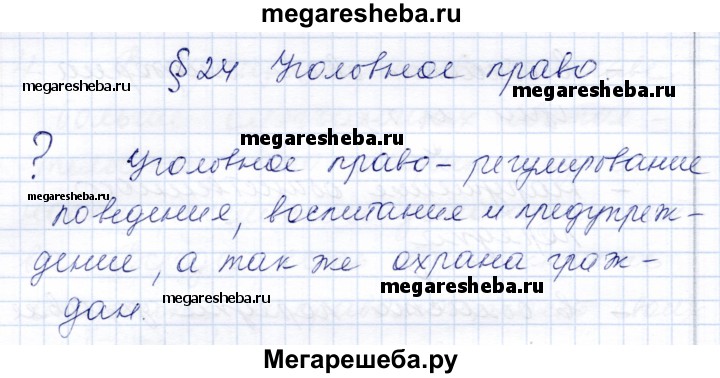 megaresheba.ru
§ 24 Уголовное право.
megaresheba.ru
megaresheba.ru
megaresheba.ru
? Уголовное право - регулирование
megaresheba.ru
поведения, воспитание и предупреж-
дение, а так же охрана граж-
megaresheba.ru
megaresheba.ru
дан.
Мегарешеба.ру